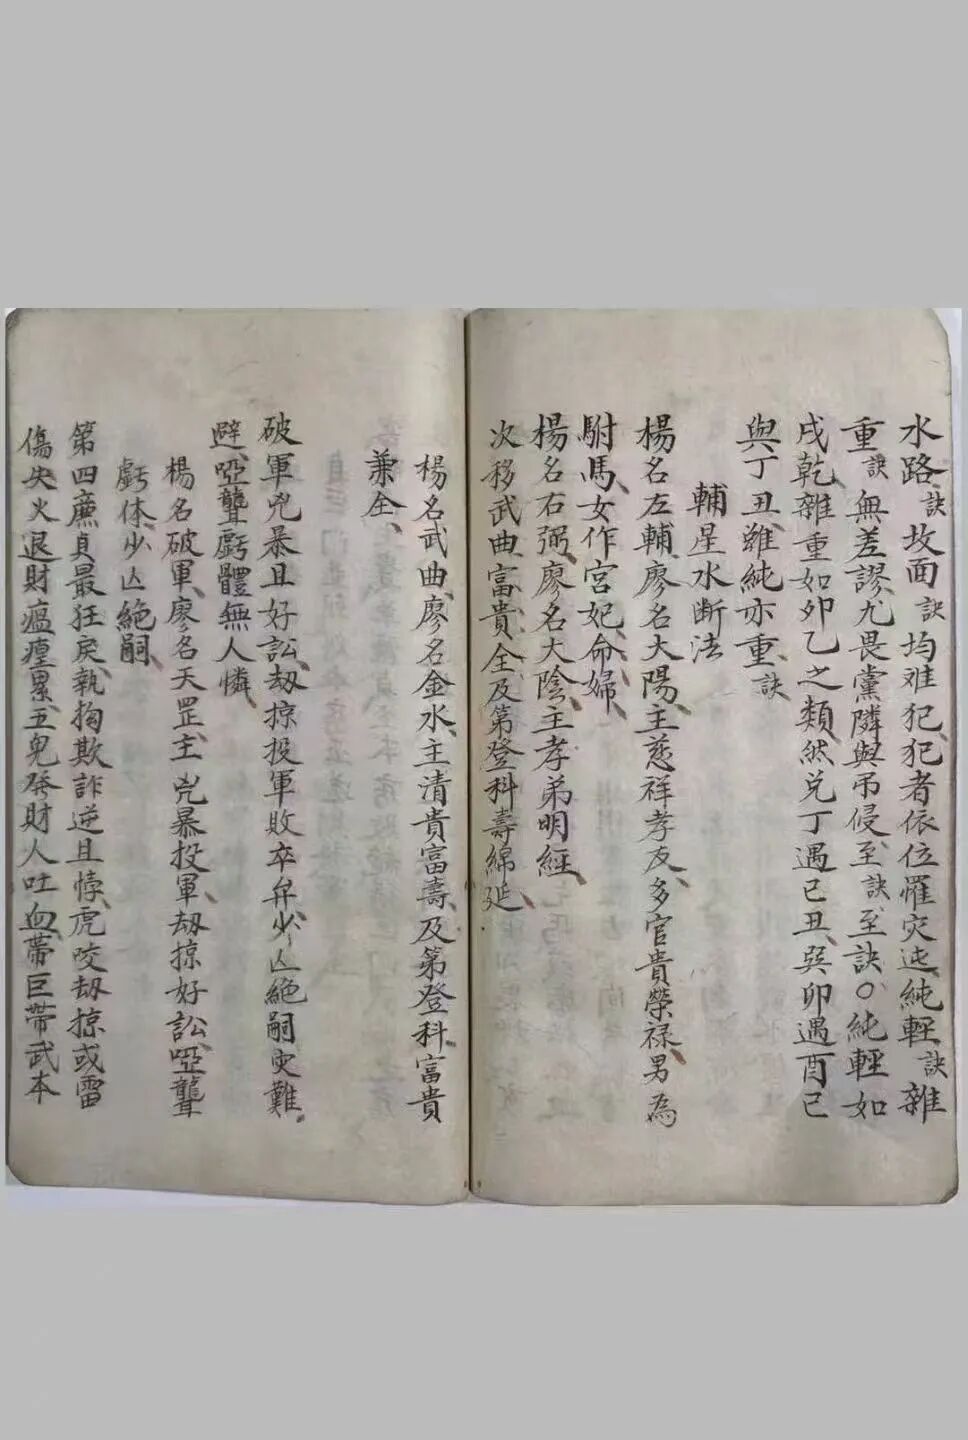 水路、訣坟面訣均难犯、犯者依位罹灾迍、純輕訣雜
重訣無差謬、尤畏黨隣與吊侵、至訣至訣〇純輕如
戌乾、雜重如夘乙之類、然兑丁遇巳丑、巽卯遇酉巳
與丁丑、雖純亦重、訣
輔星水断法
楊名左輔、廖名大陽、主慈祥孝友、多官貴榮禄、男為
駙馬、女作宮妃命婦、
楊名右弼、廖名大陰、主孝弟明經、
次移武曲、富貴全、及第登科、壽綿延、
楊名武曲、廖名金水、主清貴富壽、及第登科、富貴
兼全、
破軍兇暴且好訟、刼掠投軍敗卒弁、少亾絕嗣灾難
避、啞聾虧體無人憐
楊名破軍、廖名天罡、主兇暴投軍、刼掠好訟、啞聾
虧体、少亾絕嗣、
第四廉貞最狂戾、執拘欺詐逆且悖、虎咬刼掠或雷
傷、失火退財瘟瘽累、五鬼發財人吐血、帶巨帶武本